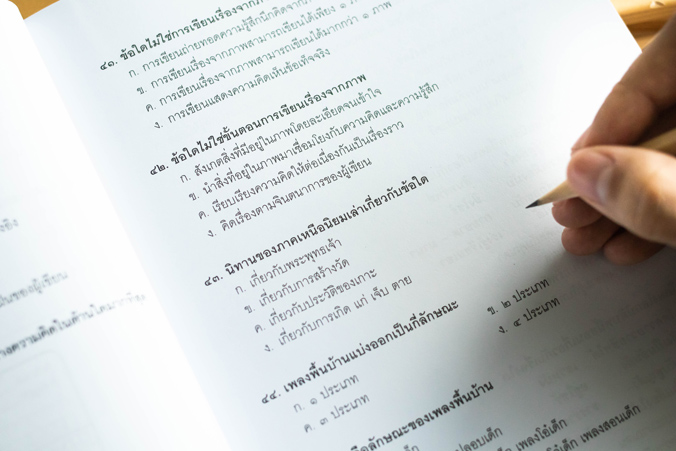 องิง
ป็นของผู้เขียน
ความคิดในด้านใดมากที่สุด
๔๑. ข้อใดไม่ใช่การเขียนเรื่องจากภาพ
ก. การเขียนถ่ายทอดความรู้สึกนึกคิดจาก
ข. การเขียนเรื่องจากภาพสามารถเขียนได้เพียง ๑
ค. การเขียนเรื่องจากภาพสามารถเขียนได้มากกว่า ๑ ภาพ
ง. การเขียนแสดงความคิดเห็นข้อเท็จจริง
๔๒. ข้อใดไม่ใช่ขั้นตอนการเขียนเรื่องจากภาพ
ก. สังเกตสิ่งที่มีอยู่ในภาพโดยละเอียดจนเข้าใจ
ข. นำสิ่งที่อยู่ในภาพมาเชื่อมโยงกับความคิดและความรู้สึก
ค. เรียบเรียงความคิดให้ต่อเนื่องกันเป็นเรื่องราว
ง. คิดเรื่องตามจินตนาการของผู้เขียน
๔๓. นิทานของภาคเหนือนิยมเล่าเกี่ยวกับข้อใด
ก. เกี่ยวกับพระพุทธเจ้า
ข. เกี่ยวกับการสร้างวัด
ค. เกี่ยวกับประวัติของเกาะ
ง. เกี่ยวกับการเกิด แก่ เจ็บ ตาย
๔๔. เพลงพื้นบ้านแบ่งออกเป็นกี่ลักษณะ
ก. ๑ ประเภท ข. ๒ ประเภท
ค. ๓ ประเภท ง. ๔ ประเภท
ือลักษณะของเพลงพื้นบ้าน
ปลอบเด็ก
เพลงโอ๋เด็ก
โอ๋เด็ก เพลงสอนเด็ก